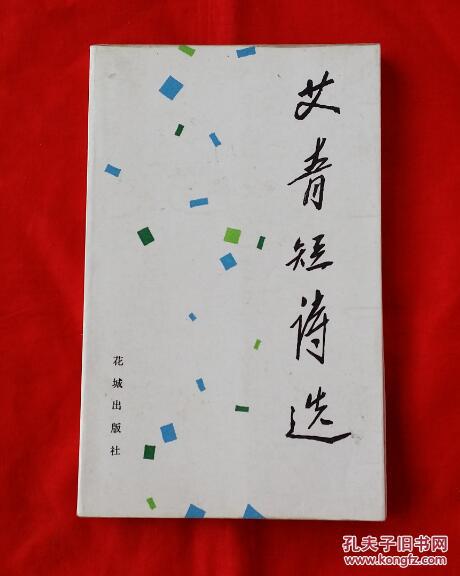 艾青短诗选
花城出版社
孔夫子旧书网
www.kongfz.com